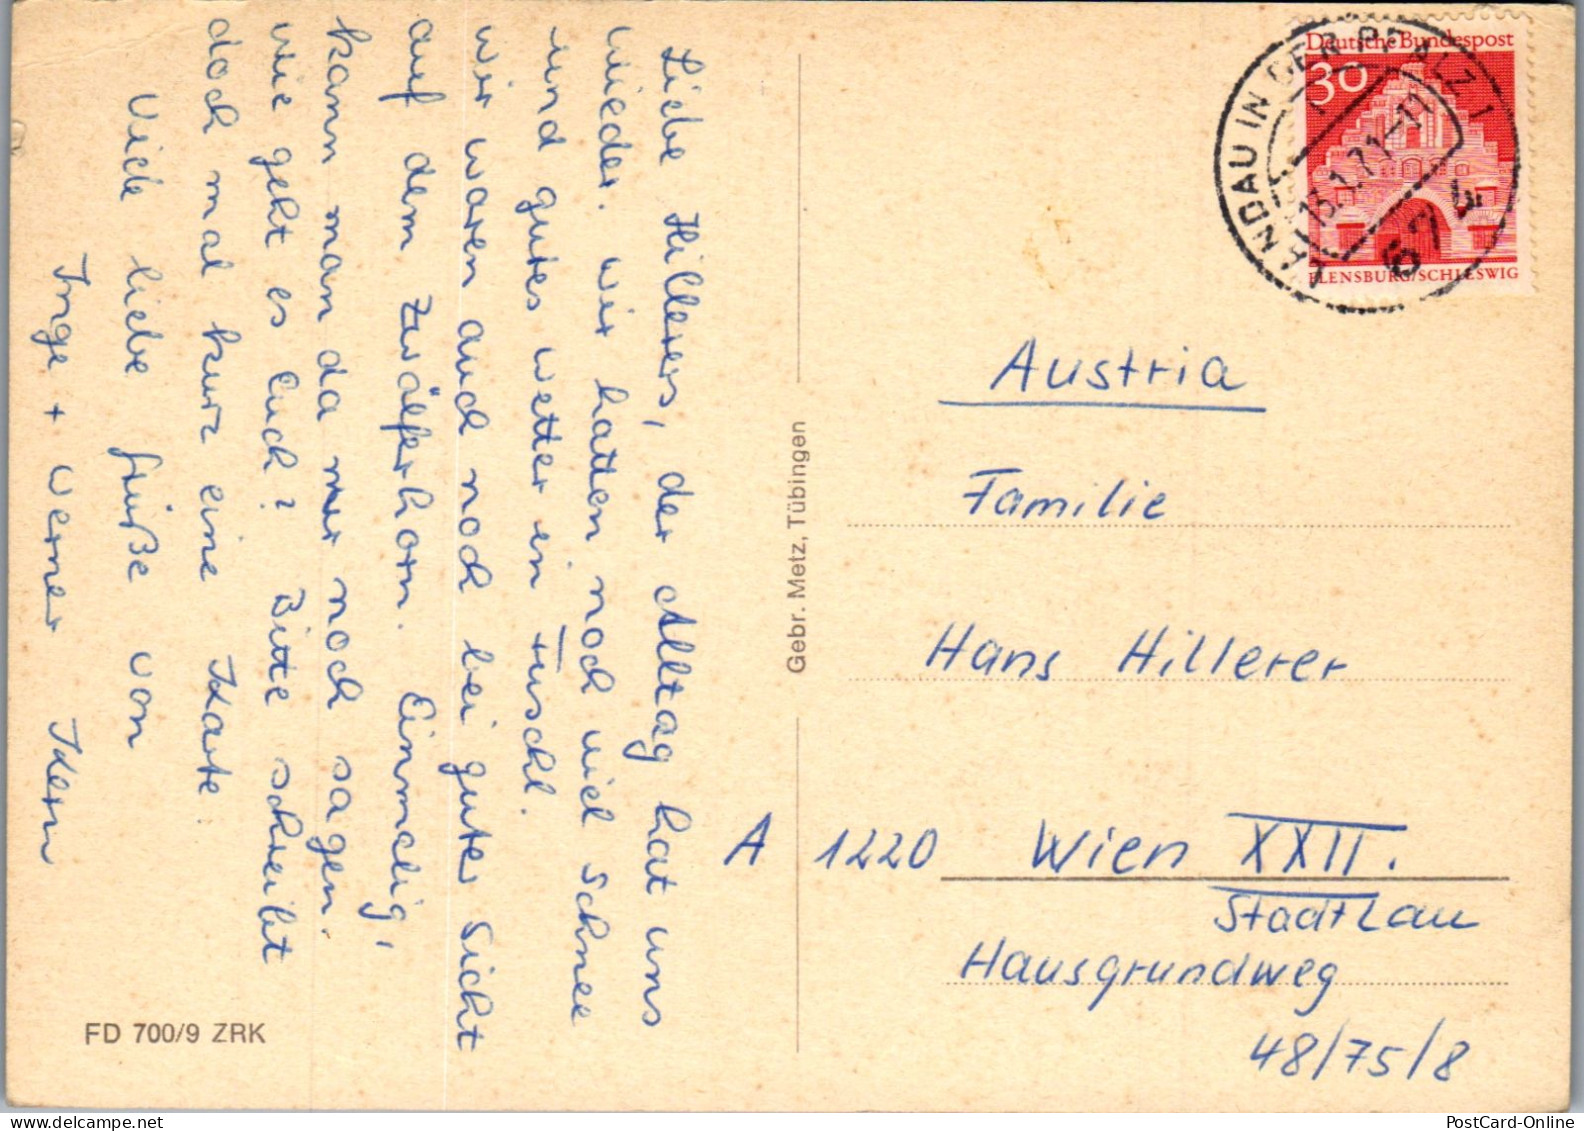 Liebe Hillerers, der Alltag hat uns
wieder. wir hatten noch viel Schnee
und gutes wetter in Fuschl.
wir waren auch noch bei guter Sicht
auf dem Zwölferhorn. Einmalig,
kann man da nur noch sagen.
wie geht es Euch? Bitte schreibt
doch mal kurz eine Karte.
Viele liebe Grüße von
Inge + Werner Kern
FD 700/9 ZRK
Gebr. Metz, Tübingen
Deutsche Bundespost
30
FLENSBURG/SCHLESWIG
LANDAU IN DER PFALZ 1
674
Austria
Familie
Hans Hillerer
A 1220 Wien XXII.
Stadtlau
Hausgrundweg
48/75/8
PostCard-Online